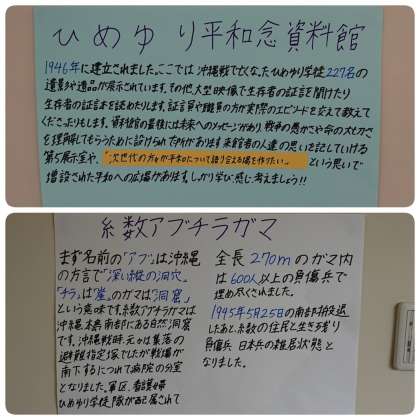 ひめゆり平和念資料館
1946年に建立されました。ここでは沖縄戦で亡くなったひめゆり学徒227名の
遺影や遺品が展示されています。その他、大型映像で生存者の証言を聞けたり
生存者の証言本を読めたりします。証言員や職員の方が実際のエピソードを交えて教えて
くださったりもします。資料館の最後には未来へのメッセージがあり、戦争の愚かさや命の大切さ
を理解してもらうために設けられた所があります。来館者の人達の思いを記していける
第5展示室や、「次世代の方々が平和について語り合える場を作りたい。」という思いで
増設された平和への広場があります。しっかり学び、感じ、考えましょう!!
糸数アブチラガマ
まず名前の「アブ」は沖縄
の方言で「深い縦の洞穴」
「チラ」は「崖」のガマは「洞窟」
という意味です。糸数アブチラガマは
沖縄本島南部にある自然洞窟
です。沖縄戦時、元々は集落の
避難指定壕でしたが戦場が
南下するにつれて病院の分室
となりました。軍医、看護婦
ひめゆり学徒隊が配属されて
全長270mのガマ内
は600人以上の負傷兵で
埋め尽くされました。
1945年5月25日の南部
したあと、糸数の住民と生き残り
負傷兵、日本兵の雑居状態と
なりました。